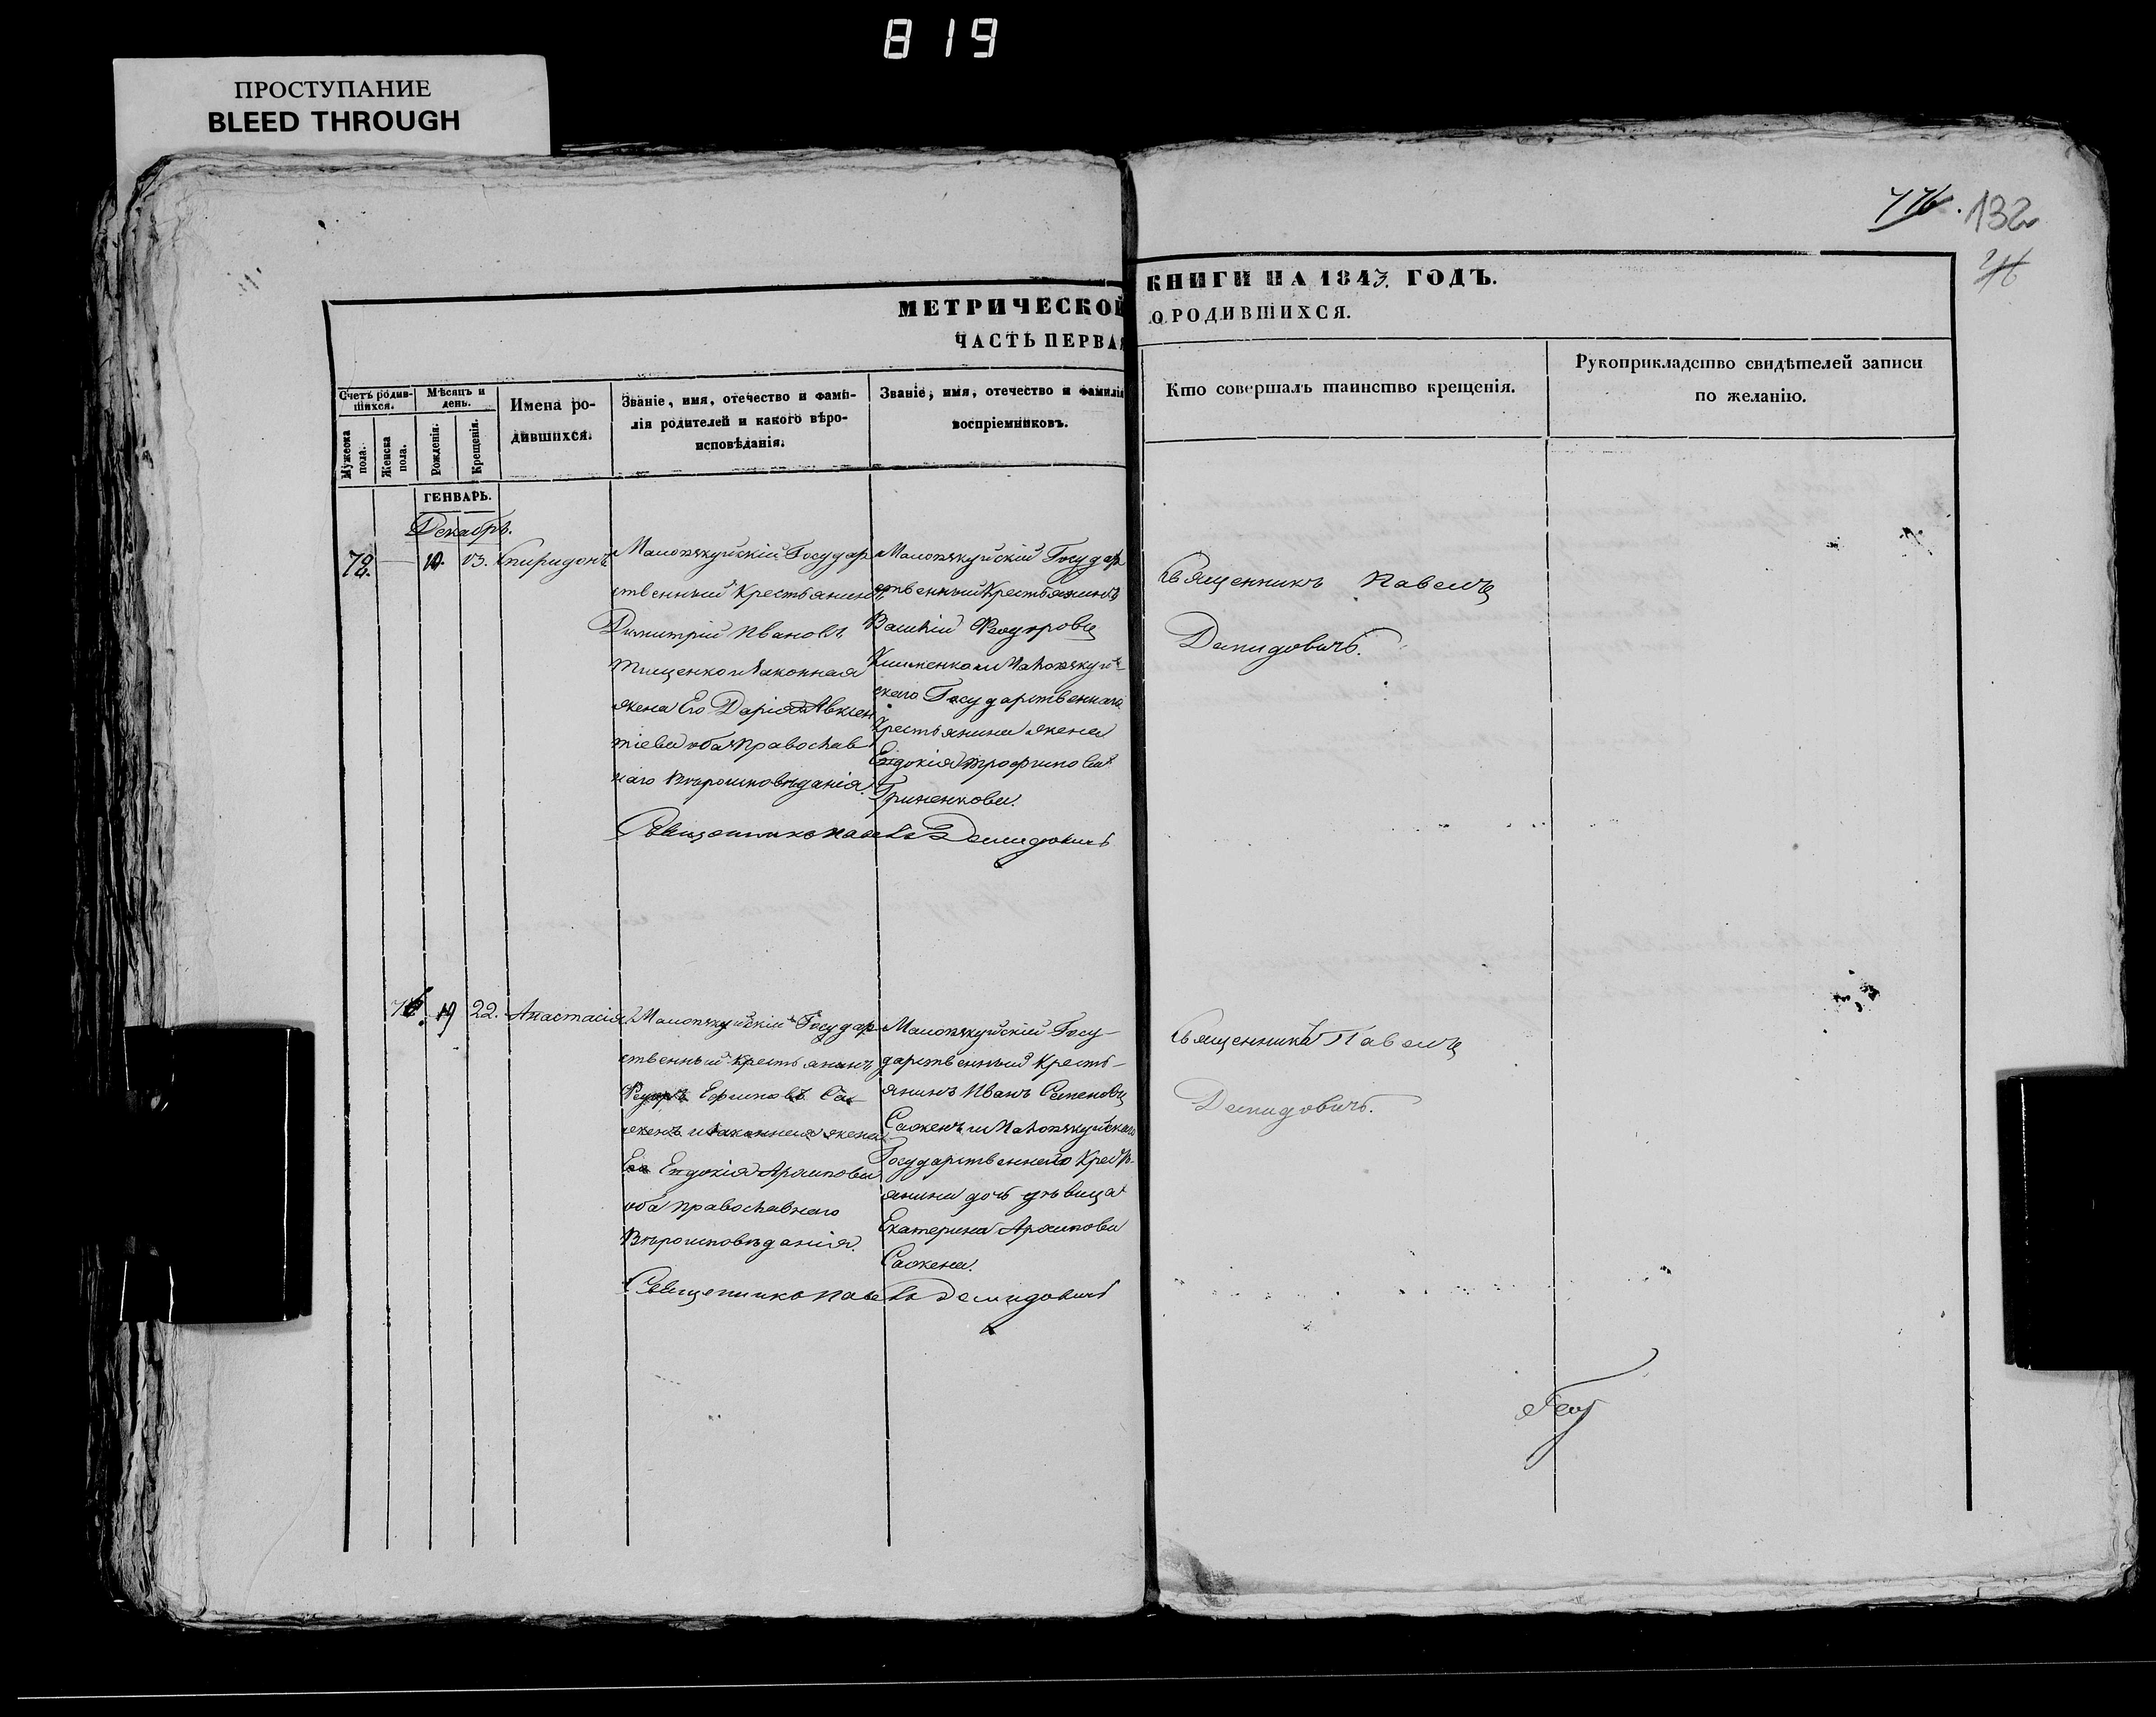 819
ПРОСТУПАНИЕ
BLEED THROUGH
132
МЕТРИЧЕСКОЙ КНИГИ НА 1843. ГОДЪ.
ЧАСТЬ ПЕРВАЯ О РОДИВШИХСЯ.
Счетъ родив-
шихся.
Мужеска
пола.
Женска
пола.
Мѣсяцъ и
день.
Рожденія.
Крещенія.
Имена ро-
дившихся.
Званіе, имя, отечество и фами-
лія родителей и какого вѣро-
исповѣданія.
Званіе, имя, отечество и фамилія
воспріемниковъ.
Кто совершалъ таинство крещенія.
Рукоприкладство свидѣтелей записи
по желанію.
ГЕНВАРЬ.
Декабрь.
78.
13.
Спиридонъ
Государ
ственный Крестьянинъ
Димитрій Ивановъ
Тищенко и Законная
жена Его Дарія Авксен
тіева оба Православ
наго Вѣроисповѣданія.
Государ
ственный Крестьянинъ
Василій Феодоровъ
скаго Государственнаго
Крестьянина жена
Евдокія Трофимова
Гриненкова.
Священникъ Павелъ Демидовичъ
Священникъ Павелъ
Демидовичъ.
19
22.
Анастасія
Государ
ственный Крестьянинъ
Феодоръ Ефимовъ Са
женъ и Законная жена
Его Евдокія Архипова
оба Православнаго
Вѣроисповѣданія.
Госу-
дарственный Кресть-
янинъ Иванъ Семеновъ
Саженъ и
Государственнаго Кресть-
янина дочь дѣвица
Екатерина Архипова
Сажена.
Священникъ Павелъ Демидовичъ
Священникъ Павелъ
Демидовичъ.